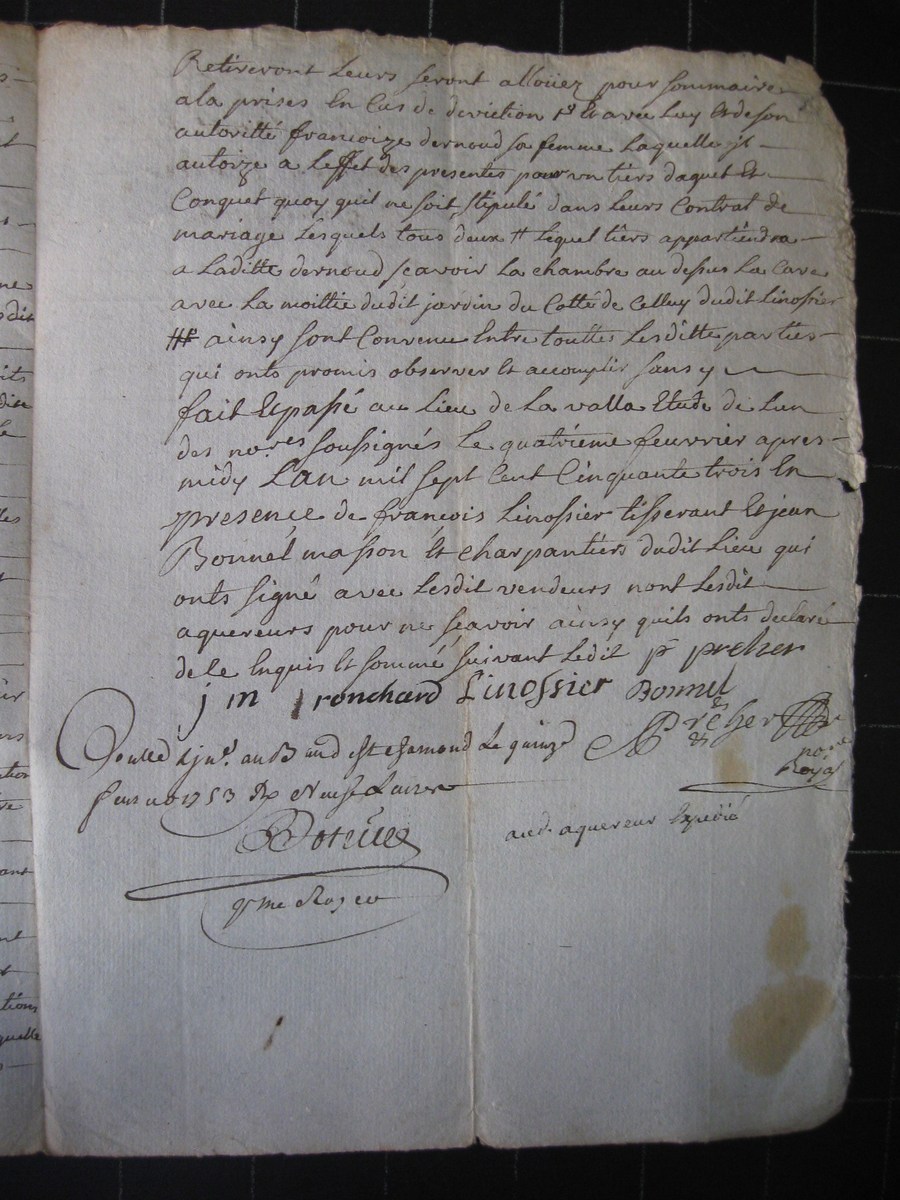 Retireront Leurs seront alloüez pour sommaire
a la prises En Cas de deviction # Et avec Luy Et de son
autoritté francoize dernoud sa femme Laquelle jl
autorize a Leffet des presentes pour un tiers daquet Et
Conquet quoy quil ne soit stipulé dans Leurs Contrat de
mariage Lesquels tous deux # Lequel tiers appartiendra
a Laditte dernoud scavoir La chambre au dessus La Cave
avec La moittie dudit jardin du Cotté de Celluy dudit Linossier
# ainsy sont Convenu Entre touttes Lesditte parties
qui onts promis observer Et accomplir sans y
fait Et passé au Lieu de La valla Etude de Lun
des no.res soussignés Le quatrieme feuvrier apres
midy Lan mil sept Cent Cinquante trois En
presence de francois Linossier tisserant Et jean
Bonnel masson Et charpantiers dudit Lieu qui
onts signé avec Lesdit vendeurs nont Lesdit
aquereurs pour ne scavoir ainsy quils onts declaré
de ce Enquis Et sommé suivant Ledit p preher
j m ronchard Linossier Bonnel
au B St chamond Le quinze
1753 Neuf Livres
no.re
Royal
aud. aquereur Expedié